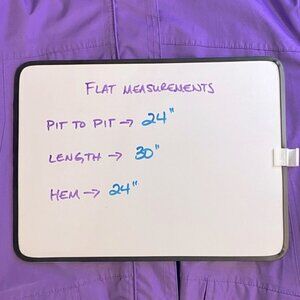 FLAT MEASUREMENTS
PIT TO PIT → 24"
LENGTH → 30"
HEM → 24"